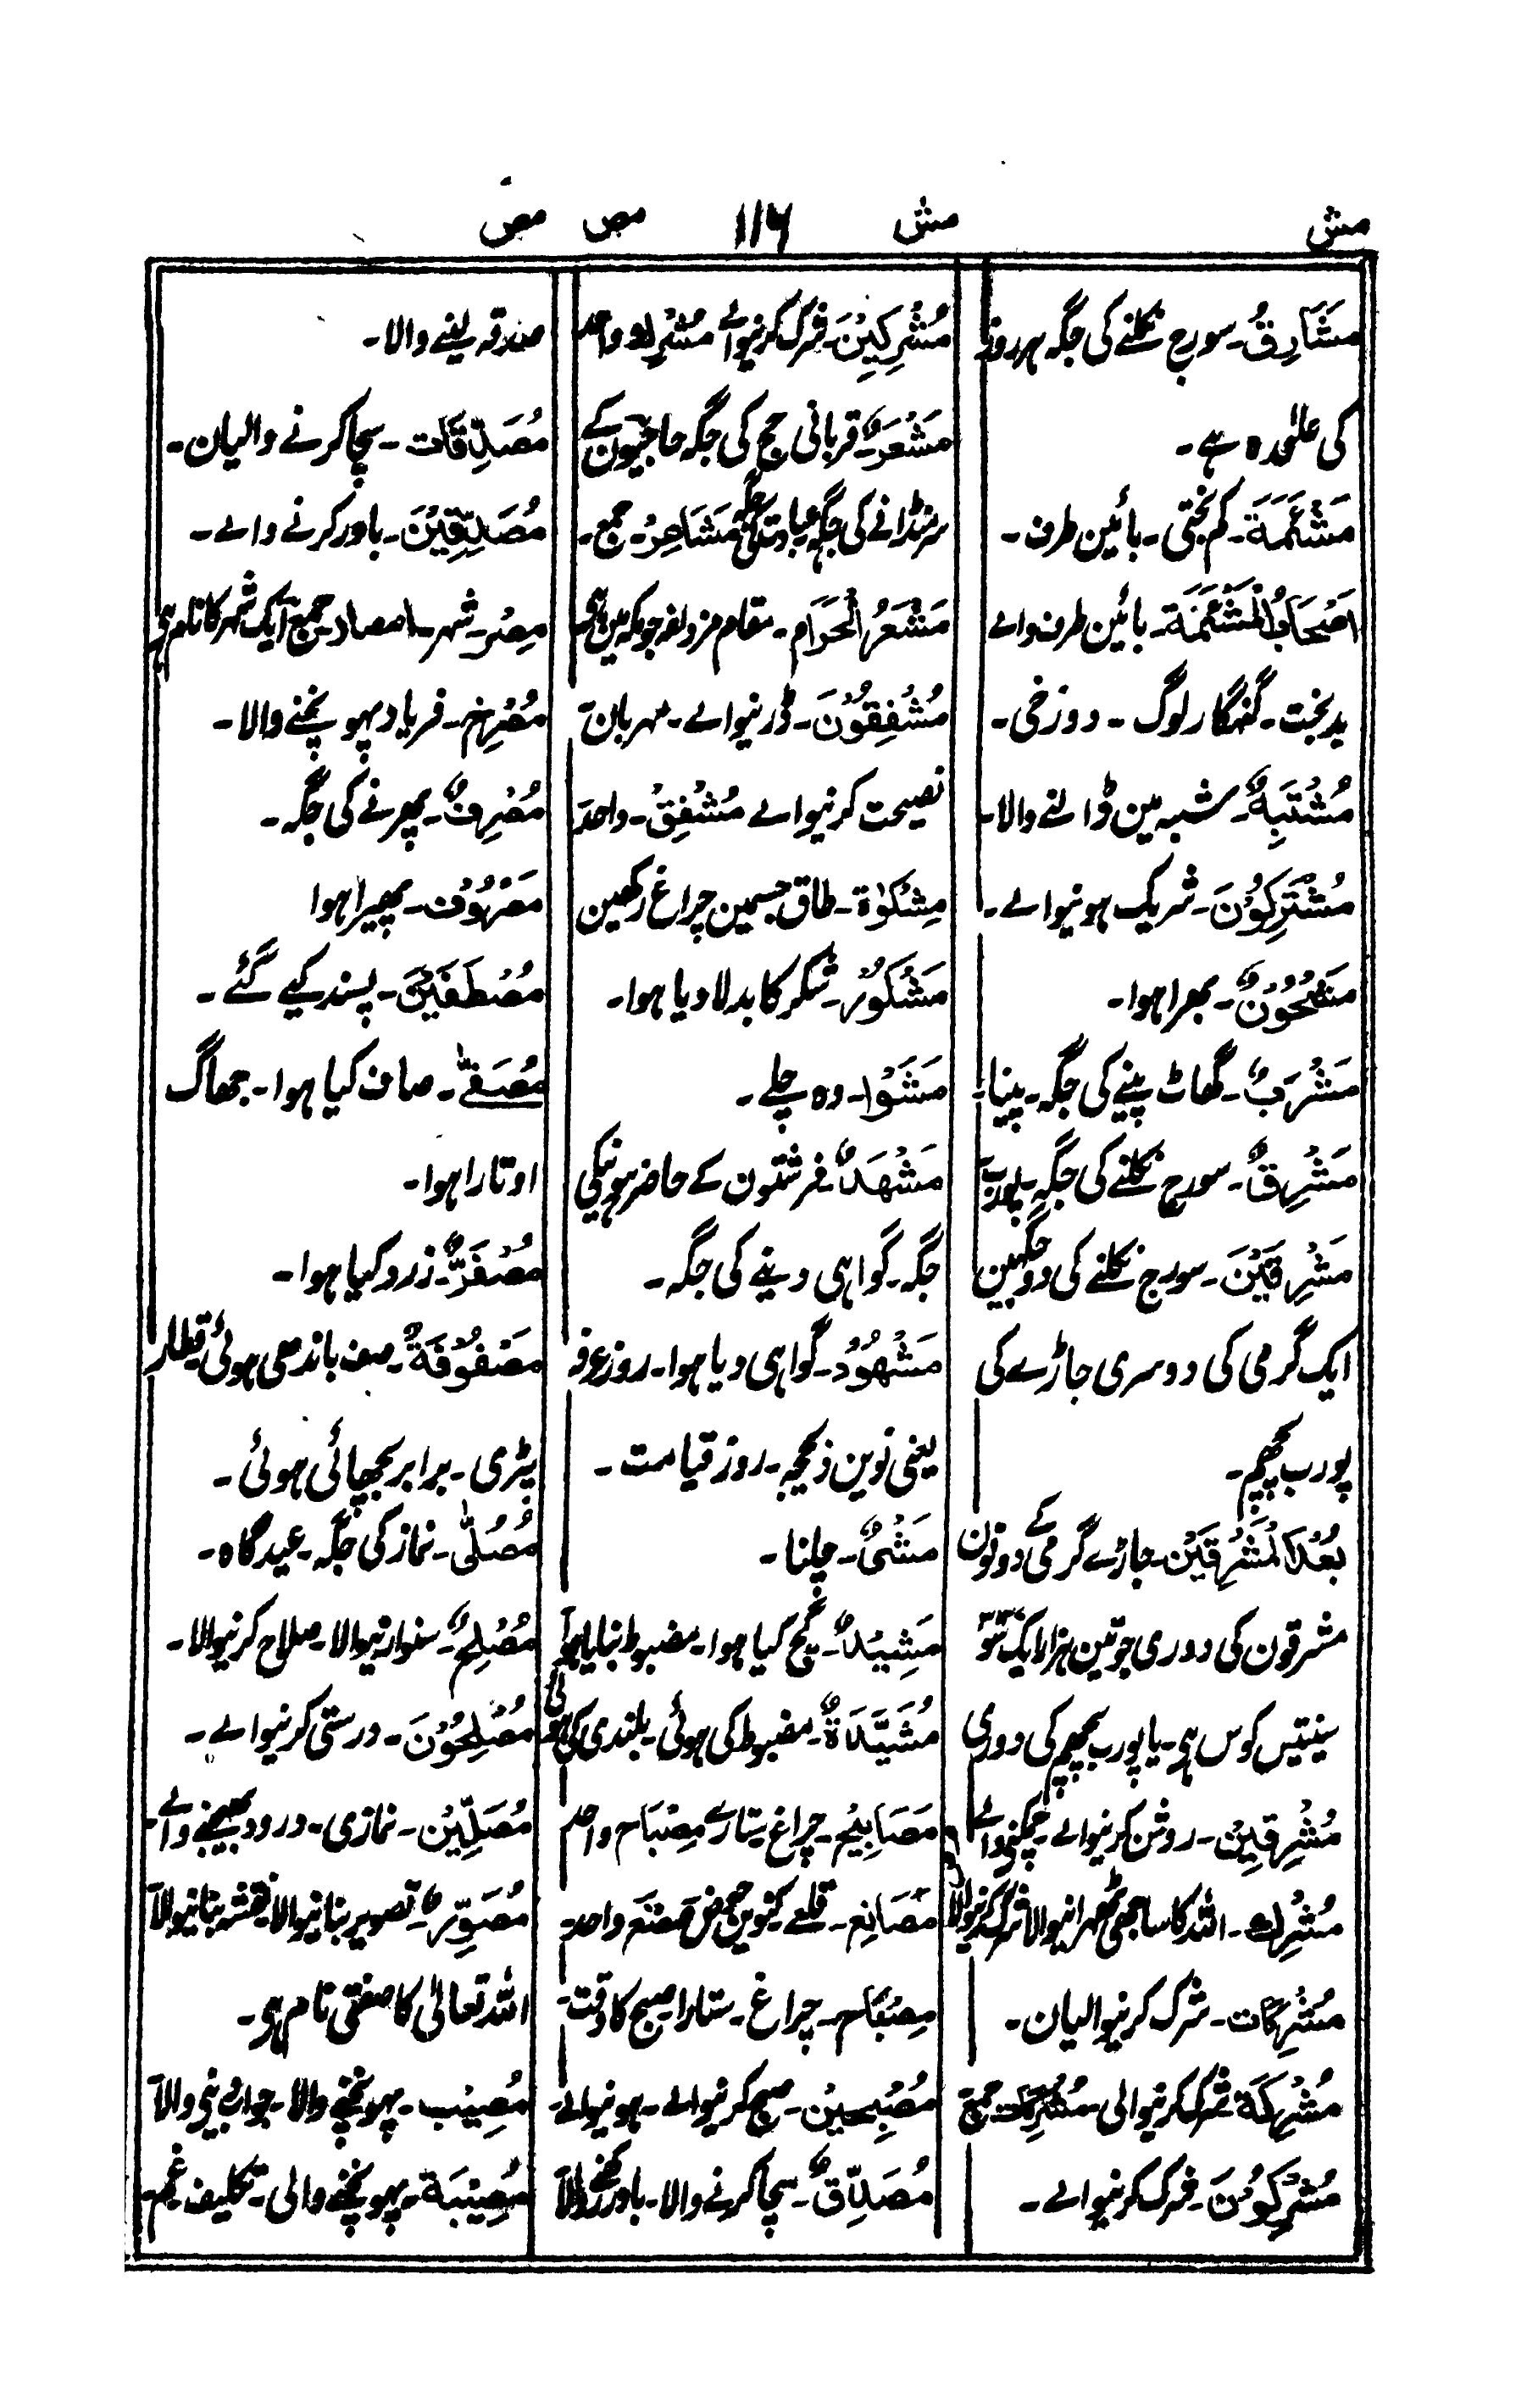 مش مش ۱۱۶ مص مص
مَشَارِقُ۔ سورج نکلنے کی جگہ ہر روز
کی علٰحدہ ہے۔
مَشْئَمَة۔ کم بختی۔ بائین طرف۔
اَصْحَابُ الْمَشْئَمَة۔ بائین طرف والے
بدبخت۔ گنہگار لوگ۔ دوزخی۔
مُشْتَبِهٌ۔ شبہ مین ڈالنے والا۔
مُشْتَرِكُوْنَ۔ شریک ہونیوالے۔
مَشْحُوْنٌ۔ بھرا ہوا۔
مَشْرَبٌ۔ گھاٹ پینے کی جگہ۔ پینا۔
مَشْرِقٌ۔ سورج نکلنے کی جگہ۔ پورب
مَشْرِقَيْنَ۔ سورج نکلنے کی دو جگہین
ایک گرمی کی دوسری جاڑے کی
پورب پچھم۔
بُعْدَ الْمَشْرِقَيْنِ۔ جاڑے گرمی کے دونون
مشرقون کی دوری جو تین ہزار ایک سو
سینتیس کوس ہی۔ یا پورب پچھم کی دوری
مُشْرِقِيْنَ۔ روشن کرنیوالے۔ چمکنے والے
مُشْرِك۔ اللہ کا ساجھی ٹھہرانیوالا شرک کرنیوالا
مُشْرِكَات۔ شرک کرنیوالیان۔
مُشْرِكَة شرک کرنیوالی۔ مُشْرِكَات جمع
مُشْرِكُوْنَ۔ شرک کرنیوالے۔
مُشْرِكِيْنَ۔ شرک کرنیوالے مُشْرِك واحد
مَشْعَرٌ۔ قربانی حج کی جگہ حاجیون کے
سر منڈانے کی جگہ عبادتکی جگہ مَشَاعِرُ۔ جمع۔
مَشْعَرُ الْحَرَام۔ مقام مزدلفہ جو مکہ مین ہی
مُشْفِقُوْنَ۔ ڈرنیوالے۔ مہربان
نصیحت کرنیوالے مُشْفِقُ۔ واحد
مِشْكٰوة۔ طاق جسمین چراغ رکھین
مَشْكُوْرٌ۔ شکر کا بدلا دیا ہوا۔
مَشَوْا۔ وہ چلے۔
مَشْهَدٌ۔ فرشتون کے حاضر ہونیکی
جگہ۔ گواہی دینے کی جگہ۔
مَشْهُوْدٌ۔ گواہی دیا ہوا۔ روز عرفہ
یعنی نوین ذیحجہ۔ روز قیامت۔
مَشْيٌ۔ چلنا۔
مَشِيْدٌ۔ گچ کیا ہوا۔ مضبوط بنایا ہوا
مُشَيَّدَةٌ۔ مضبوط کی ہوئی۔ بلندی کی ہوئی
مَصَابِيْحُ۔ چراغ ستارے مِصْبَاح واحد
مَصَانِع۔ قلعے کنوین حوض مَصْنَعَ واحد
مِصْبَاح۔ چراغ۔ ستارا۔ صبح کا وقت۔
مُصْبِحِيْنَ۔ صبح کرنیوالے۔ ہونیوالے۔
مُصَدِّقٌ۔ سچا کرنے والا۔ باور کرنے والا
صدقہ لینے والا۔
مُصَدِّقَات۔ سچا کرنے والیان۔
مُصَدِّقِيْنَ۔ باور کرنے والے۔
مِصْر۔ شہر۔ امصار۔ جمع ایک شہر کا نام ہی
مُصْرِخ۔ فریاد پہونچنے والا۔
مُصْرِفٌ۔ پھرنے کی جگہ۔
مَصْرُوْف۔ پھیرا ہوا
مُصْطَفَيْنَ۔ پسند کیے گئے۔
مُصَفًّى۔ صاف کیا ہوا۔ جھاگ
اوتارا ہوا۔
مُصْفَرٌّ۔ زرد کیا ہوا۔
مَصْفُوْفَةٌ۔ صف باندھی ہوئی قطار
پٹری۔ برابر بچھائی ہوئی۔
مُصَلًّى۔ نماز کی جگہ۔ عیدگاہ۔
مُصْلِحٌ۔ سنوارنیوالا۔ صلاح کرنیوالا۔
مُصْلِحُوْنَ۔ درستی کرنیوالے۔
مُصَلِّيْنَ۔ نمازی۔ درود بھیجنے والے۔
مُصَوِّرٌ۔ تصویر بنانیوالا نقشہ بنانیوالا
اللہ تعالیٰ کا صفتی نام ہی۔
مُصِيْب۔ پہونچنے والا۔ والا
مُصِيْبَة۔ پہونچنے والی۔ تکلیف غم۔